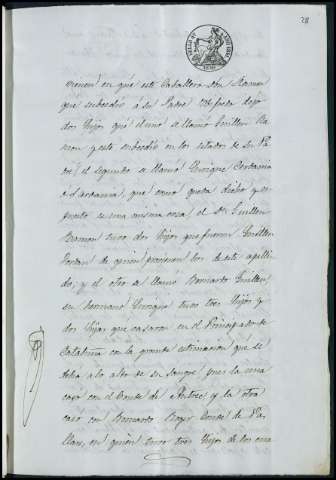 28
vienen en que este Caballero Don Ramon
que subcedio á su Padre dejó
dos hijos qué el uno se llamó Guillen Ra
mon y este subcedio en los estados de su Pa
dre, el segundo se llamó Enrique Cerdania
o dardania, que como queda dicho y
es una misma cosa, el Dn Guillen
Ramon tuvo dos hijos que fueron Guillen
de quien provienen los de este apelli
do, y el otro se llamó Bernardo Guillen,
su hermano Enrique tuvo tres hijos y
dos hijas que casaron en el Principado de
Cataluña con la grande estimacion que se
debia a lo alto de su sangre, pues la una
casó con el Conde de y la otra
casó con Bernardo Roger Conde de Pa
llas, en quien tuvo tres hijos de los cua